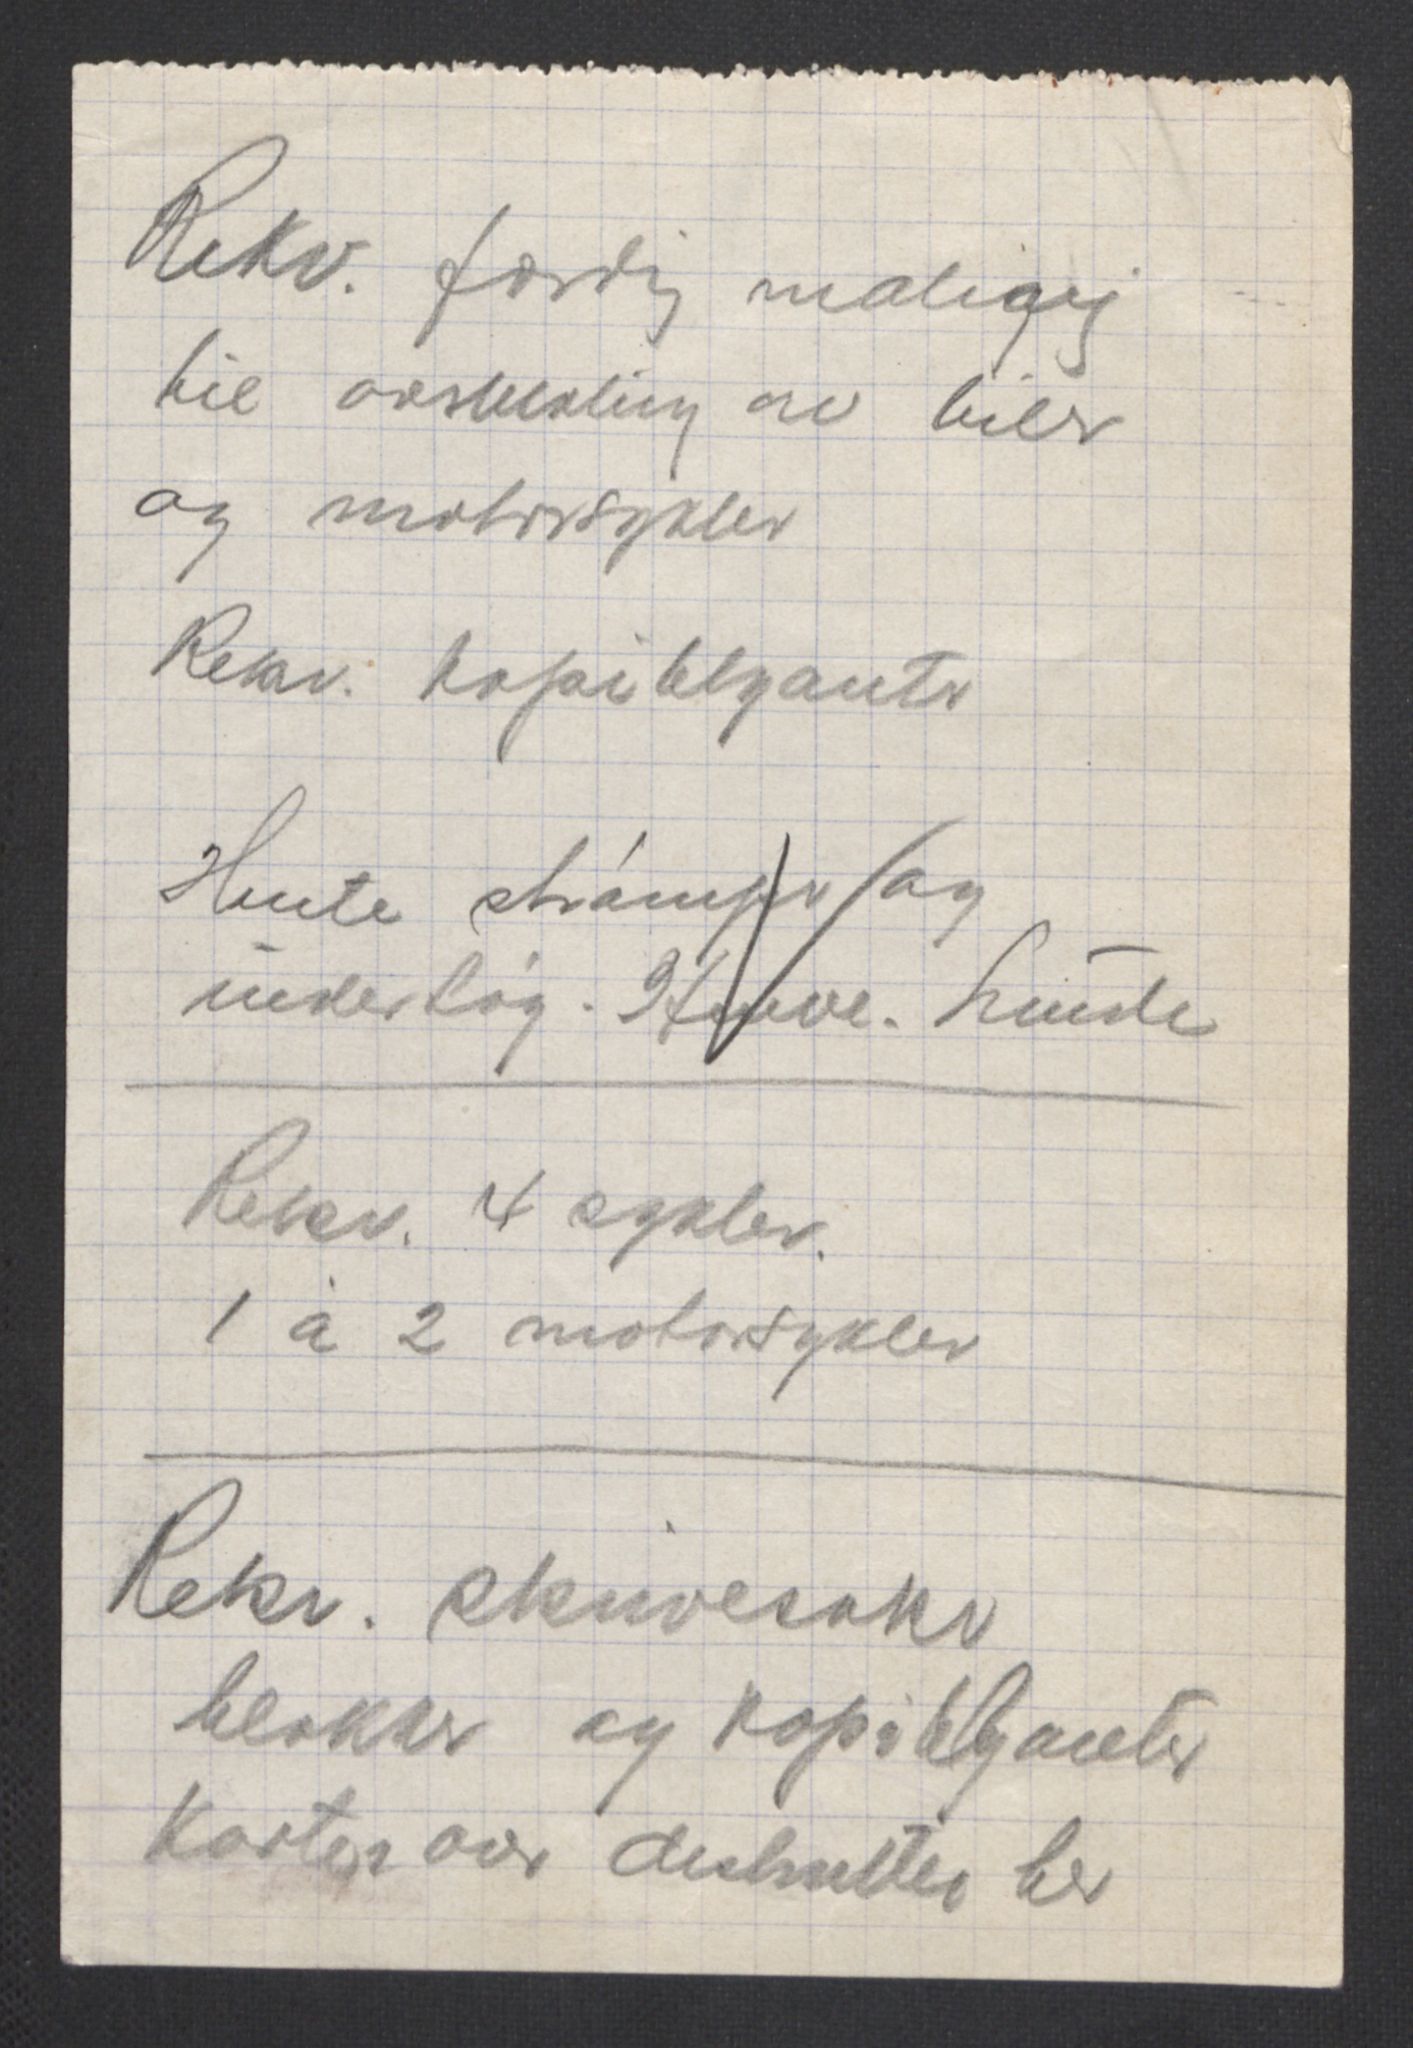 Rekv. færdig maling
til overmaling av biler
og motorsykler
Rekv. kopiblyanter
Hente strømper og
undertøy. Lunde
Rekv. 4 sykler.
1 à 2 motorsykler
Rekv. skrivesaker
blokker og kopiblyanter
Karter over distriktet her